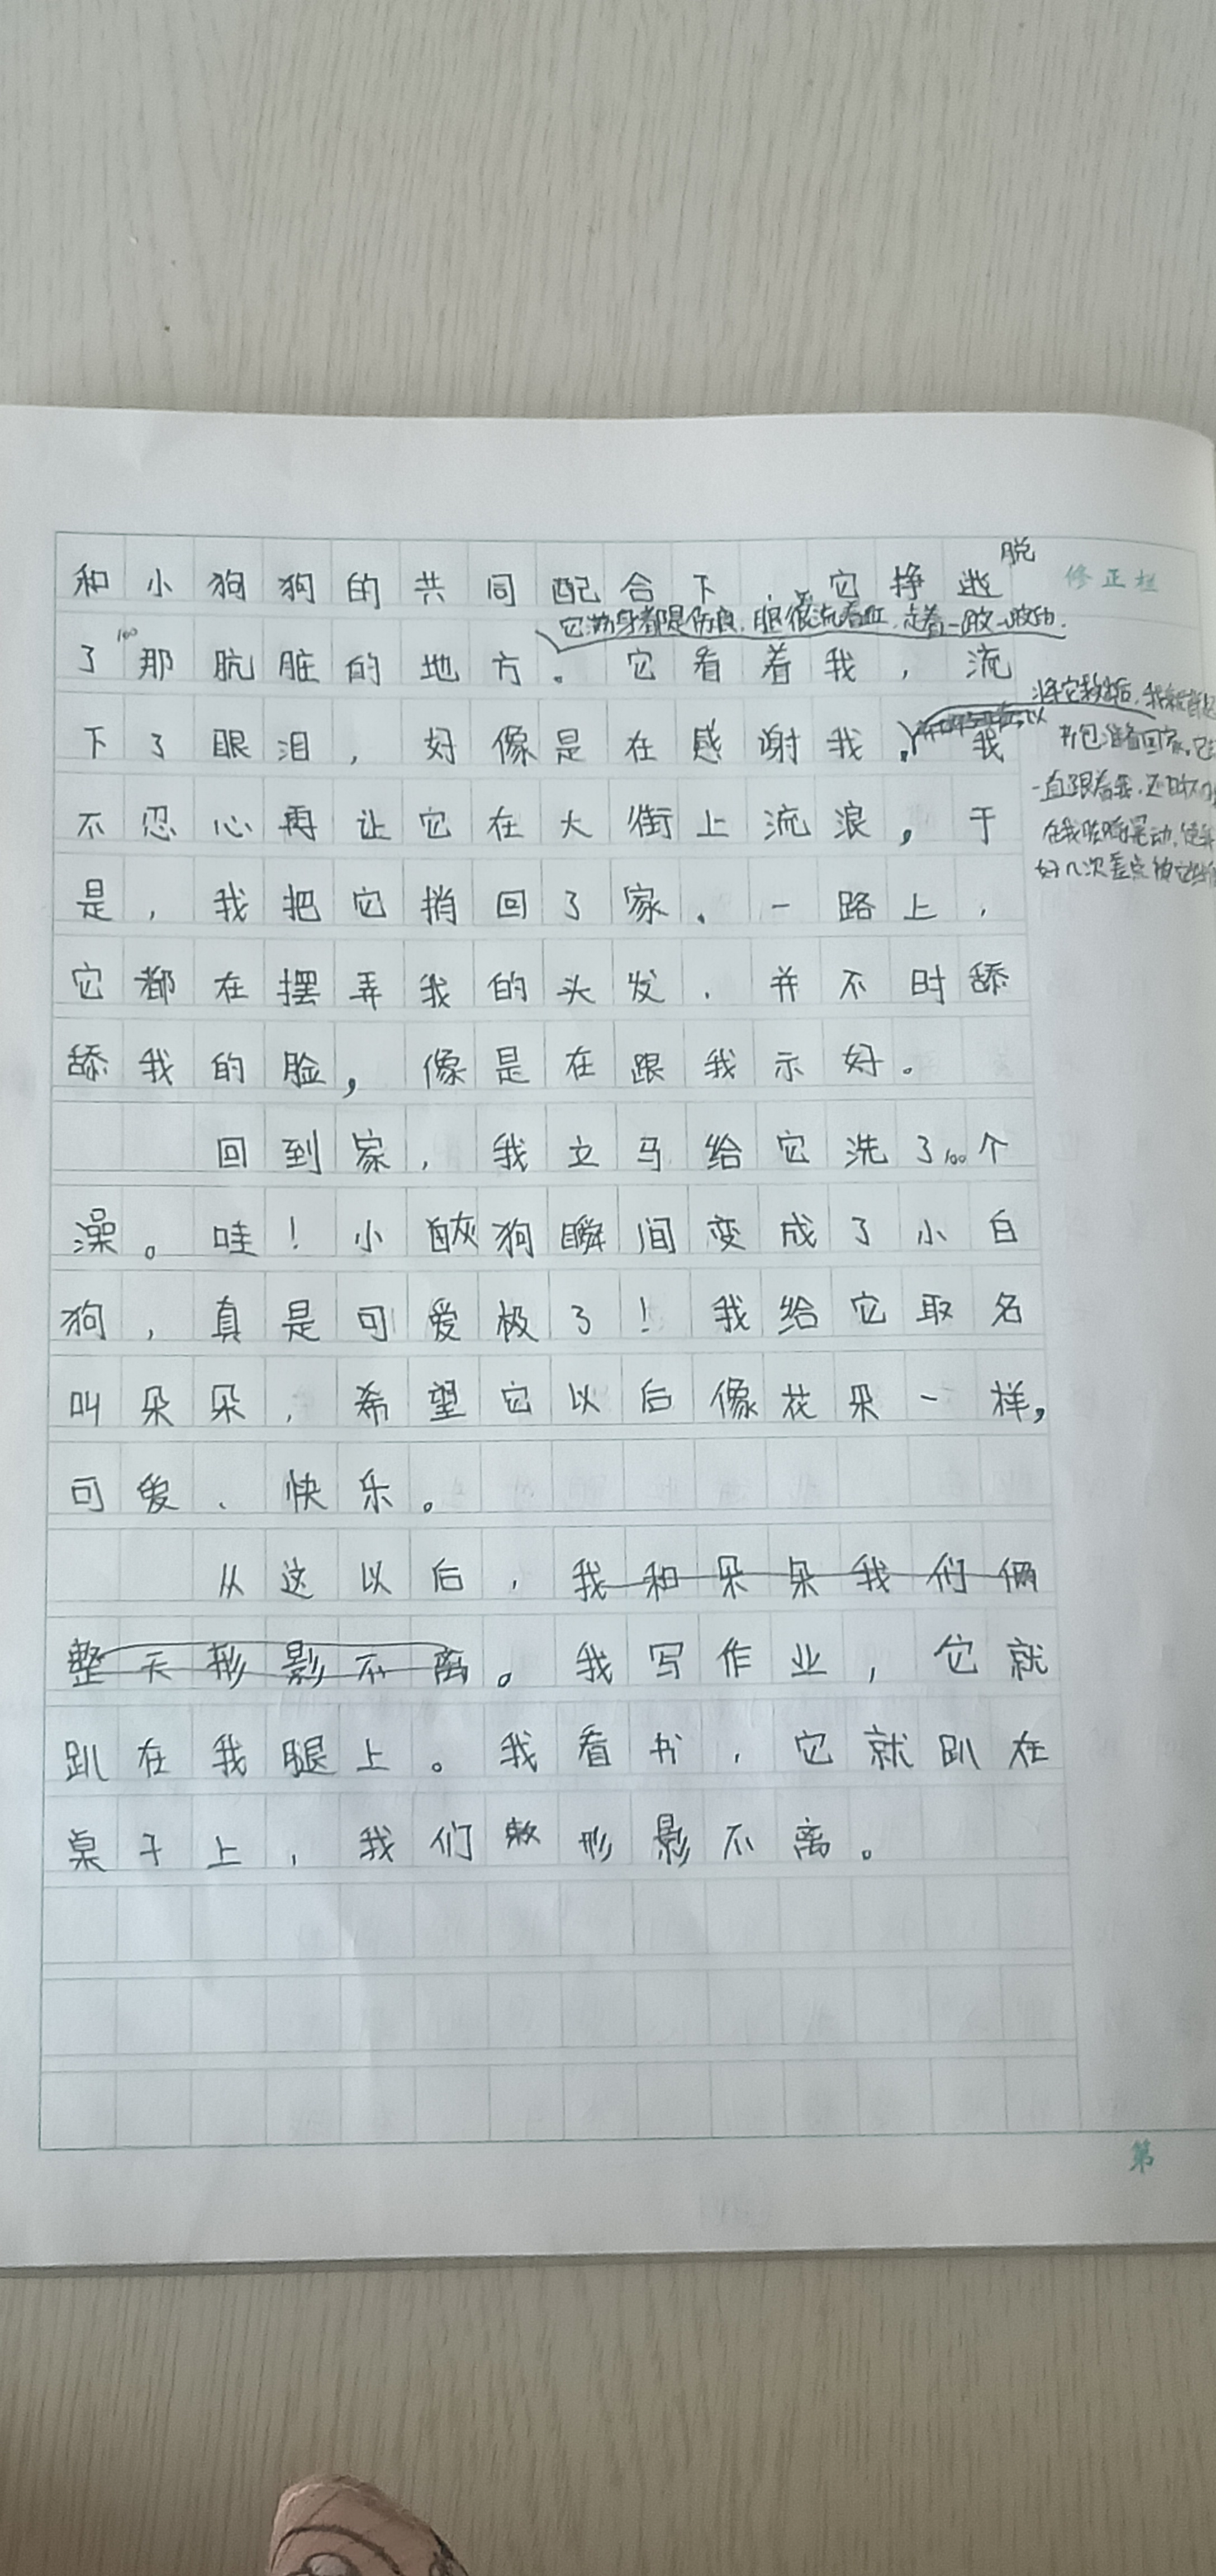 和小狗狗的共同配合下,它挣逃脱
它满身都是伤痕,腿很流着血,走着一跛一跛的.
了100那肮脏的地方。它看着我,流
下了眼泪,好像是在感谢我。我
将它救后,我就背起
书包准备回家。它
一直跟着我,还时不
在我脚
好几次差点被它
不忍心再让它在大街上流浪,于
是,我把它捎回了家。一路上,
它都在摆弄我的头发,并不时舔
舔我的脸,像是在跟我示好。
回到家,我立马给它洗了100个
澡。哇!小灰狗瞬间变成了小白
狗,真是可爱极了!我给它取名
叫朵朵,希望它以后像花朵一样,
可爱、快乐。
从这以后,我和朵朵我们俩
整天形影不离。我写作业,它就
趴在我腿上。我看书,它就趴在
桌子上,我们形影不离。
修正栏
第